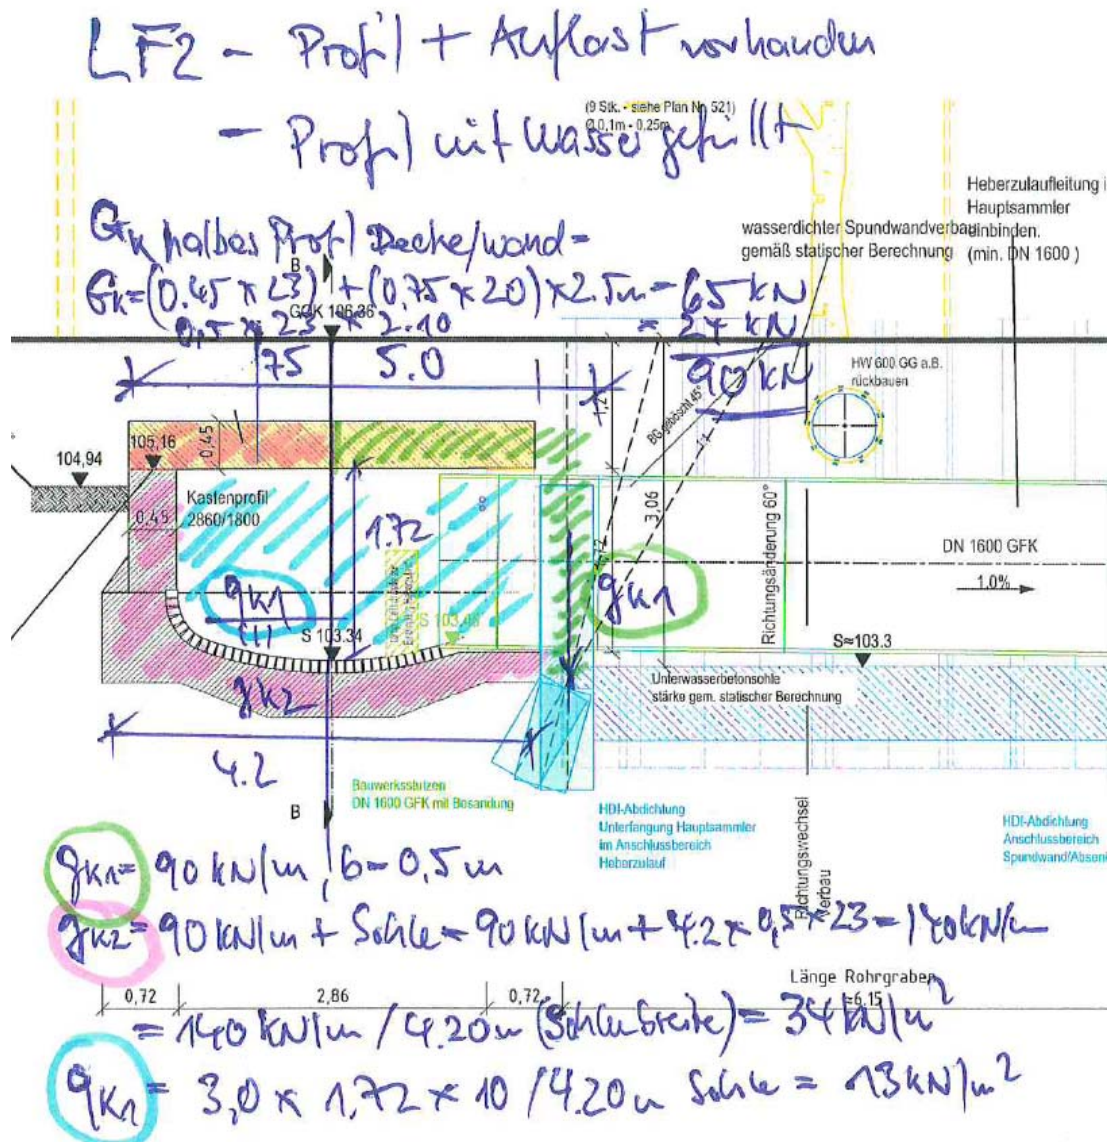 LF2 - Profil + Auflast vorhanden
(9 Stk. - siehe Plan Nr. 521)
Ø 0,1m - 0,25m
- Profil mit Wasser gefüllt
Heberzulaufleitung i
Hauptsammler
einbinden.
(min. DN 1600 )
wasserdichter Spundwandverbau
gemäß statischer Berechnung
Gk halbes Profil Decke/Wand =
B
Gk = (0.45 x 23) + (0.75 x 20) x 2.5m = 65 kN
0,5 x 23 x 2.10 = 24 kN
GOK 106,36
75
5.0
90 kN
HW 600 GG a.B.
rückbauen
BG geböscht 45°
105,16
0,45
104,94
Kastenprofil
2860/1800
0,45
1.72
3,06
Richtungsänderung 60°
DN 1600 GFK
1.0%
qk1
gk1
S 103.34
S 103,48
S≈103.3
gk2
Unterwasserbetonsohle
stärke gem. statischer Berechnung
4.2
Bauwerksstutzen
DN 1600 GFK mit Besandung
B
HDI-Abdichtung
Unterfangung Hauptsammler
im Anschlussbereich
Heberzulauf
Richtungswechsel
Verbau
HDI-Abdichtung
Anschlussbereich
Spundwand/Absen
gk1 = 90 kN/m, b = 0,5 m
gk2 = 90 kN/m + Sohle = 90 kN/m + 4.2 x 0,5 x 23 = 140 kN/m
Länge Rohrgraben
≈6,15
0,72
2,86
0,72
= 140 kN/m / 4.20m (Sohlenbreite) = 34 kN/m²
qk1 = 3,0 x 1,72 x 10 / 4.20m Sohle = 13 kN/m²